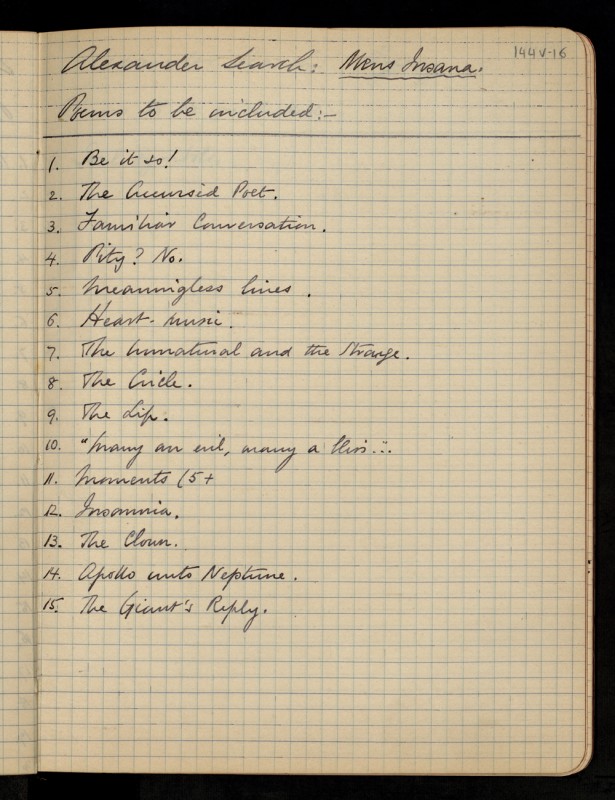 144V-16
Alexander Search: Mens Insana.
Poems to be included:-
1. Be it so!
2. The Accursed Poet.
3. Familiar Conversation.
4. Pity? No.
5. Meaningless lines.
6. Heart-music.
7. The Unnatural and the Strange.
8. The Circle.
9. The Lip.
10. "Many an evil, many a this..."
11. Moments (5+
12. Insomnia.
13. The Clown.
14. Apollo unto Neptune.
15. The Giant's Reply.